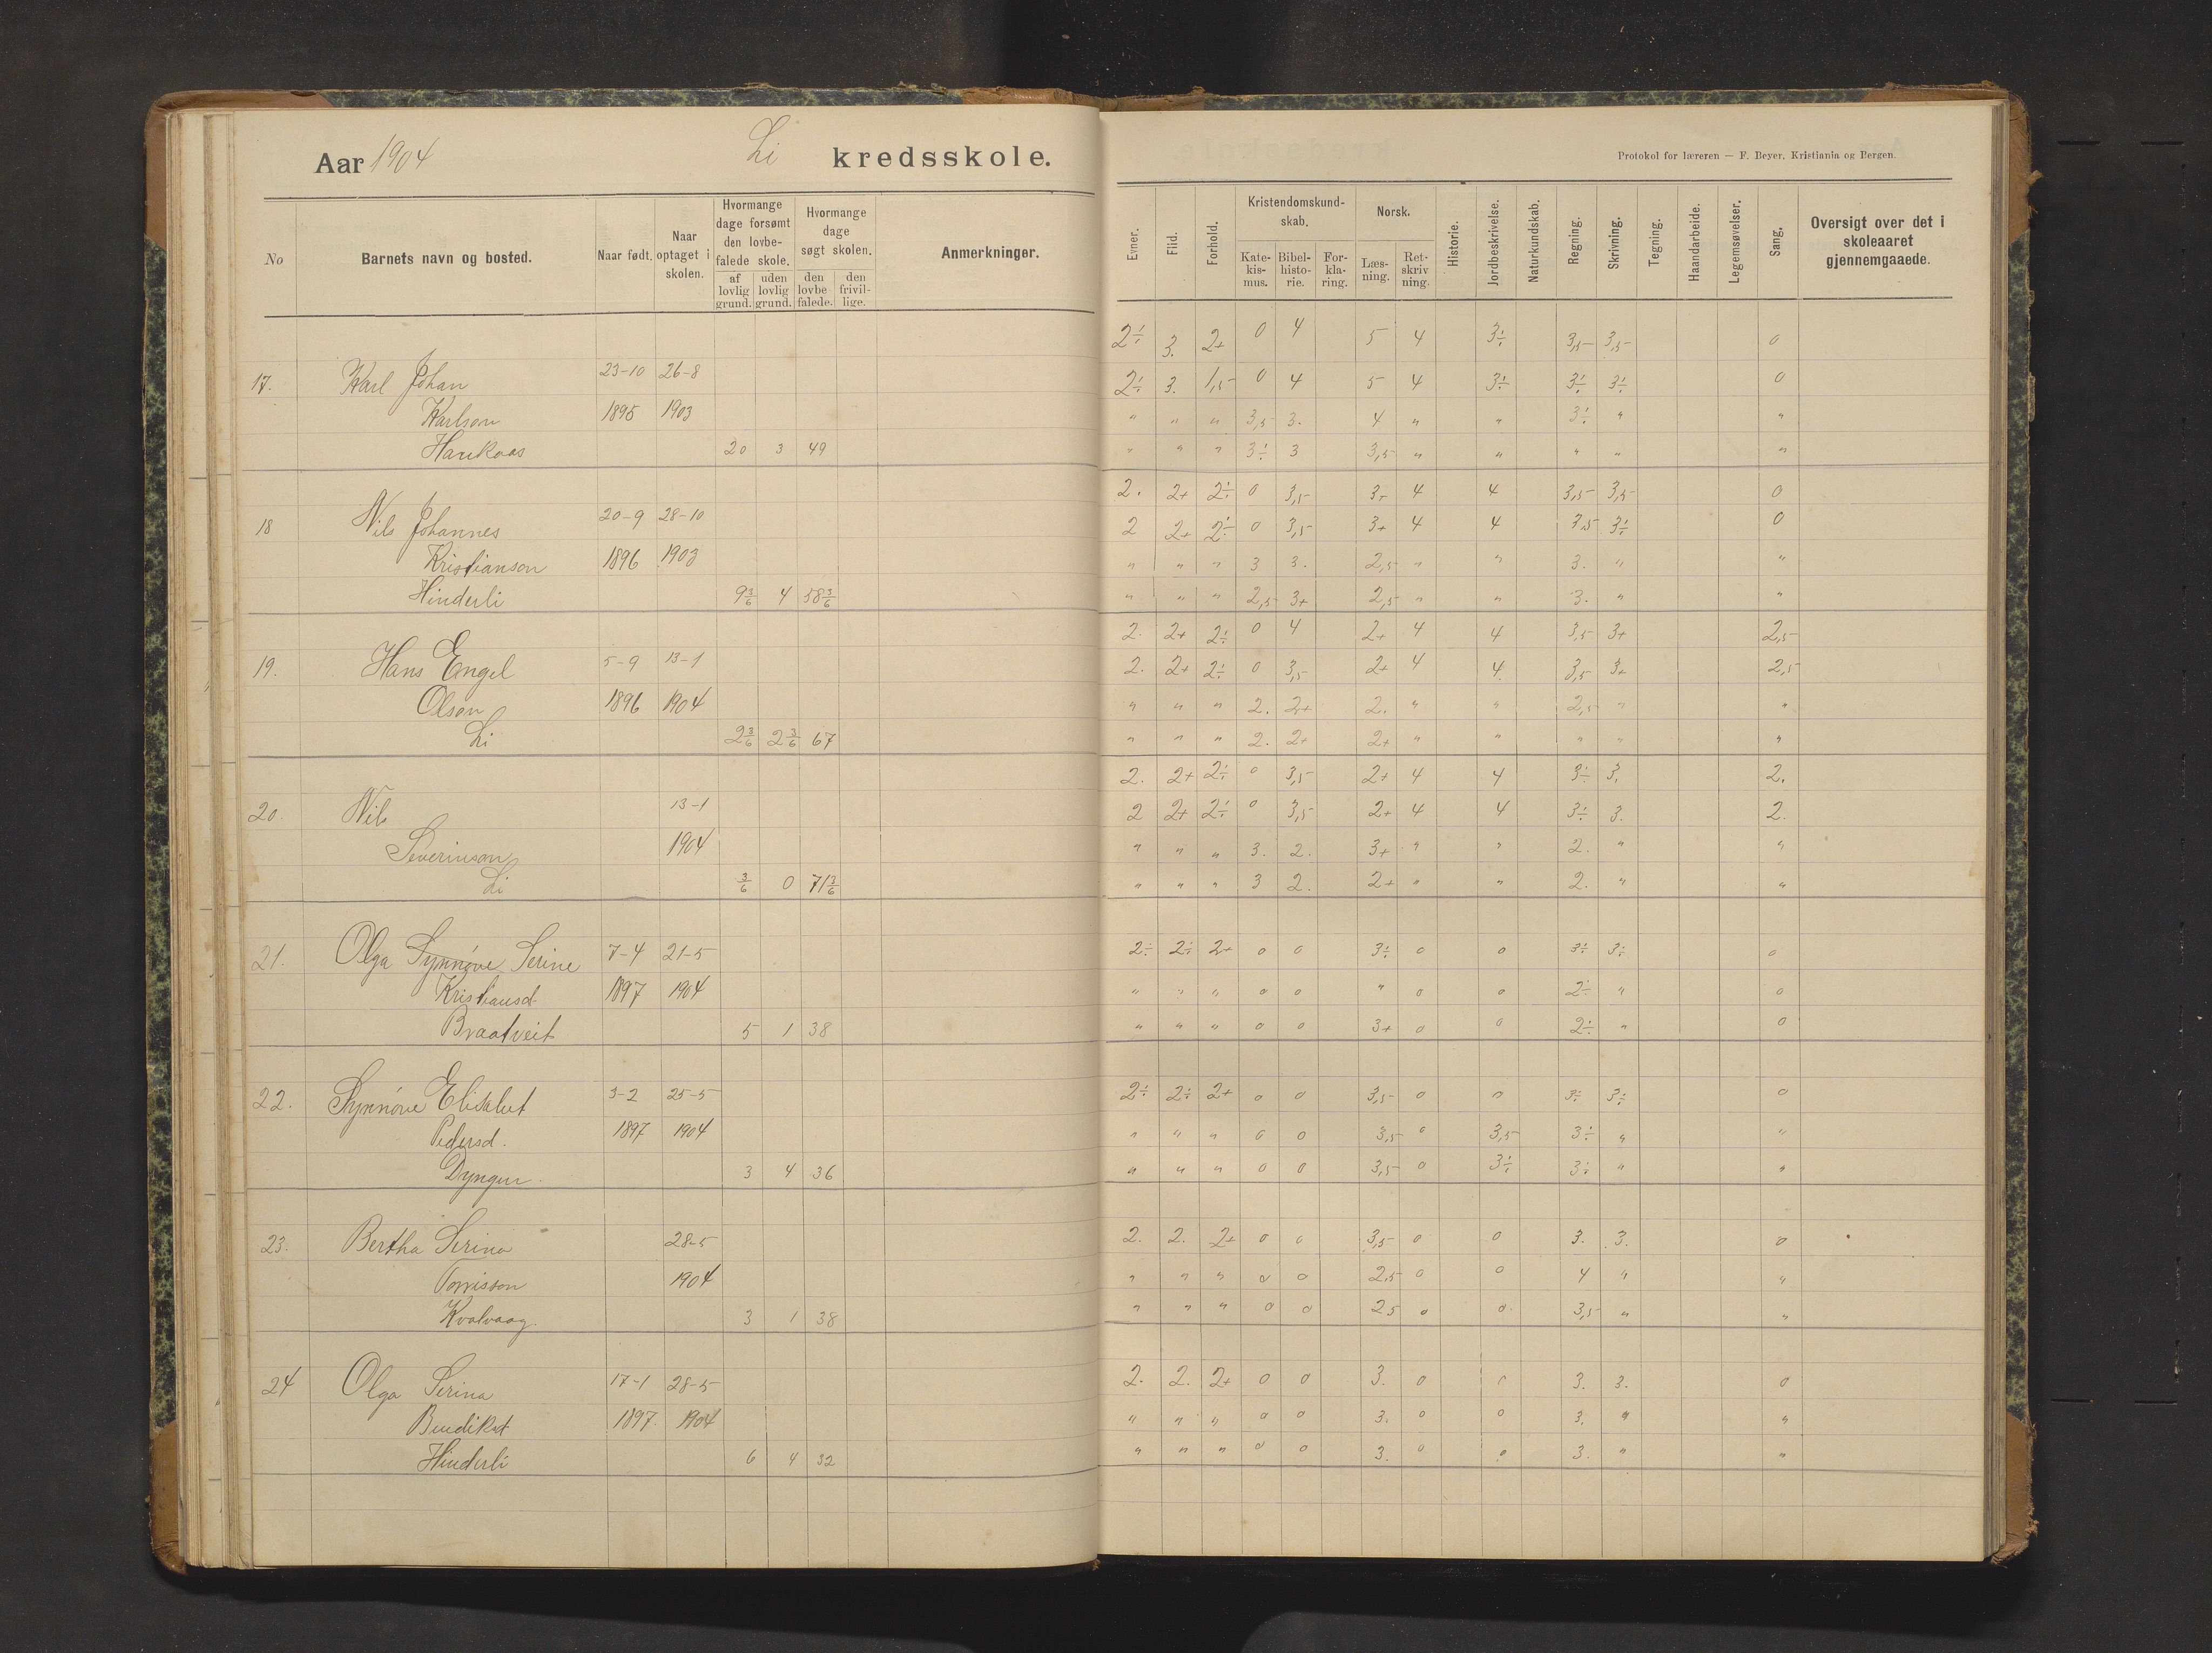 Aar 1904 Li kredsskole.
Protokol for læreren — F. Beyer, Kristiania og Bergen.
No
Barnets navn og bosted.
Naar født.
Naar optaget i skolen.
Hvormange dage forsømt den lovbefalede skole.
af lovlig grund.
uden lovlig grund.
Hvormange dage søgt skolen.
den lovbe falede.
den frivillige.
Anmerkninger.
Evner.
Flid.
Forhold.
Kristendomskundskab.
Katekismus.
Bibelhistorie.
Forklaring.
Norsk.
Læsning.
Retskriv ning.
Historie.
Jordbeskrivelse.
Naturkundskab.
Regning.
Skrivning.
Tegning.
Haandarbeide.
Legemsøvelser.
Sang.
Oversigt over det i skoleaaret gjennemgaaede.
2÷ 3. 2+ 0 4 5 4 3÷ 3,5 3,5 0
17. Karl Johan 23-10 26-8 2÷ 3. 1,5 0 4 5 4 3÷ 3÷ 3÷ 0
Karlson 1895 1903 " " " 3,5 3. 4 " " 3÷ " "
Haukaas 20 3 49 " " " 3÷ 3 3,5 " " " " "
2. 2+ 2÷ 0 3,5 3+ 4 4 3,5 3,5 0
18 Nils Johannes 20-9 28-10 2 2+ 2÷ 0 3,5 3+ 4 4 3,5 3÷ 0
Kristianson 1896 1903 " " " 3 3. 2,5 " " 3. " "
Hinderli 9 3/6 4 58 3/6 " " " 2,5 3+ 2,5 " " 3. " "
2. 2+ 2÷ 0 4 2+ 4 4 3,5 3+ 2,5
19. Hans Engel 5-9 13-1 2. 2+ 2÷ 0 3,5 2+ 4 4. 3,5 3+ 2,5
Olson 1896 1904 " " " 2. 2+ 2. " " 2,5 " "
Li 2 3/6 2 3/6 67 " " " 2. 2+ 2+ " " " " "
2. 2+ 2÷ 0 3,5 2+ 4 4 3÷ 3. 2.
20. Nils 13-1 2 2+ 2÷ 0 3,5 2+ 4 4 3÷ 3. 2.
Severinson 1904 " " " 3. 2. 3+ " " 2. " "
Li 3/6 0 71 3/6 " " " 3 2. 2+ " " 2. " "
21. Olga Synnøve Serine 7-4 21-5 2÷ 2÷ 2+ 0 0 3÷ 0 0 3÷ 3÷ 0
Kristiansd. 1897 1904 " " " 0 0 " 0 0 2÷ " 0
Braatveit 5 1 38 " " " 0 0 3+ 0 0 2÷ " 0
22. Synnøve Elisabet 3-2 25-5 2÷ 2÷ 2+ 0 0 3,5 0 0 3÷ 3÷ 0
Pedersd. 1897 1904 " " " 0 0 3,5 0 3,5 3÷ " "
Dyngen. 3 4 36 " " " 0 0 3,5 0 3÷ 3÷ " "
23. Bertha Serina 28-5 2. 2. 2+ 0 0 3,5 0 0 3. 3. 0
1904 " " " 0 0 2,5 0 0 4 " "
Kvalvaag. 3 1 38 " " " 0 0 2,5 0 0. 3,5 " "
24 Olga Serina 17-1 28-5 2. 2. 2+ 0 0 3. 0 0 3. 3. 0
1897. 1904 " " " 0 0 3. 0 0 3. " "
Hinderli 6 4 32 " " " 0 0 3. 0 0 3. " "